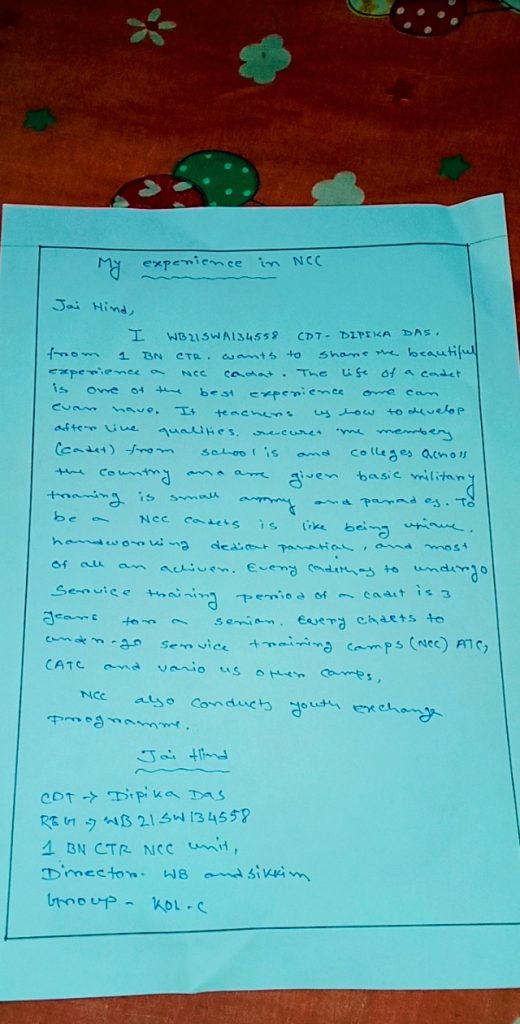 My experience in NCC
Jai Hind,
I WB21SWA134558 CDT- DIPIKA DAS,
from 1 BN CTR. wants to share me beautiful
experience a NCC cadat. The life of a cadet
is one of the best experience one can
evan have. It teachers us how to develop
after live qualities. recures me members
(cadet) from school is and colleges across
the country and are given basic military
traning is small army and parades. To
be a NCC cadets is like being unique.
handworking dedicat , and most
of all an achiver. Every cadethas to undergo
Service training period of a cadet is 3
years for a senior. Every cadets to
under-go service training camps (NCC) ATC,
CATC and vario us other camps,
NCC also conducts youth exchange
programme.
Jai Hind
CDT → Dipika Das
REG → WB21SW134558
1 BN CTR NCC unit,
Director- WB and Sikkim
Group - KOL-C